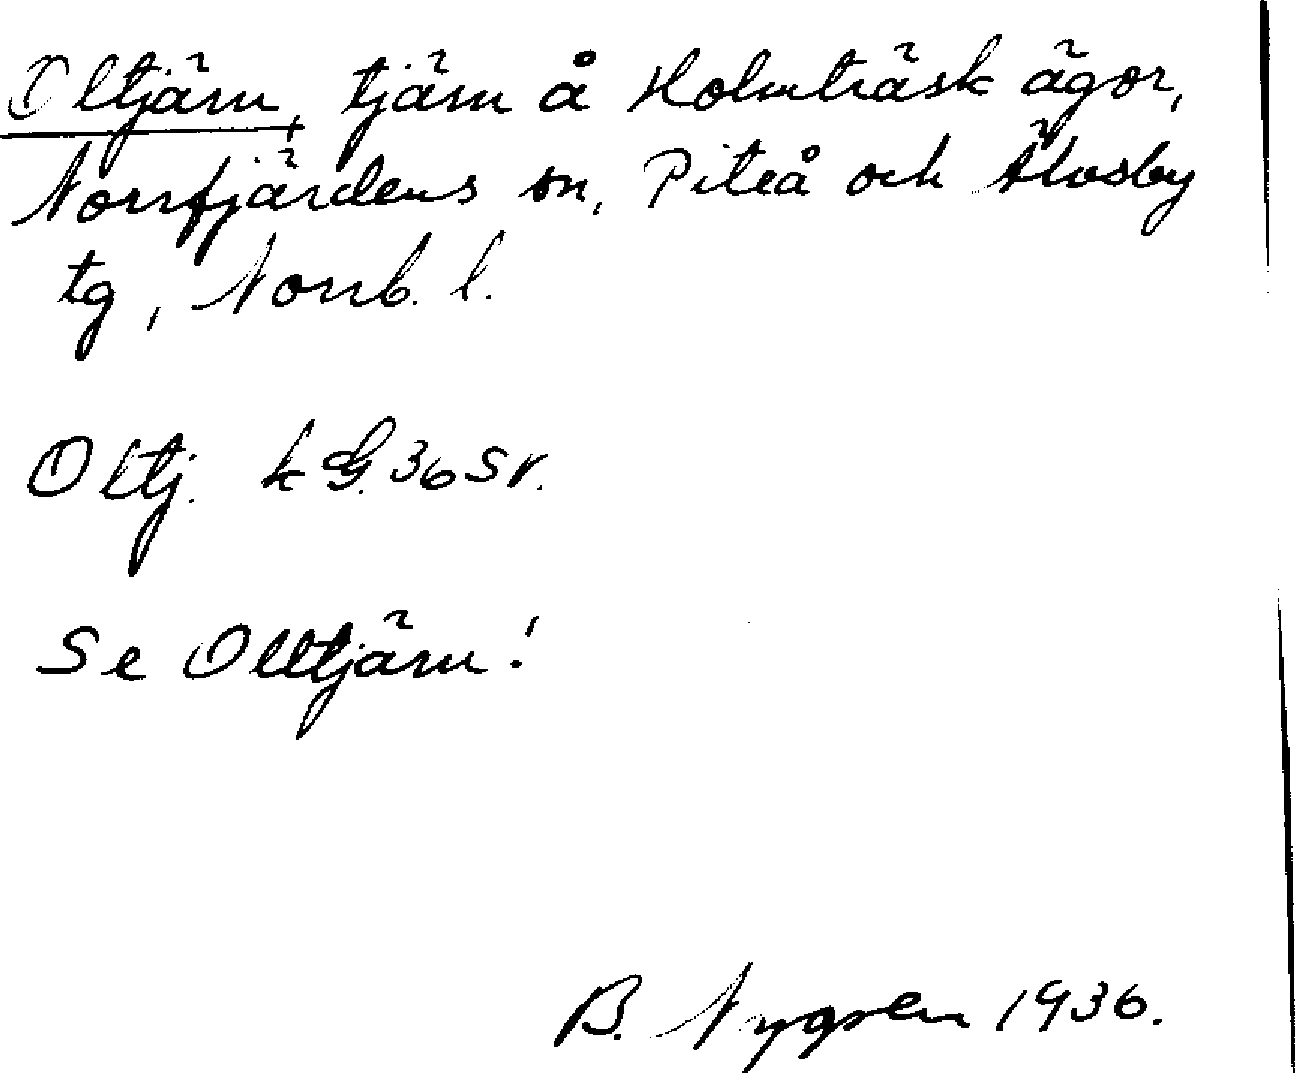 Oltjärn, tjärn å Holmträsk ägor,
Norrfjärdens sn, Piteå och Älvsby
tg, Norrb. l.
Oltj. k G. 36 SV.
Se Olltjärn!
B. Nygren 1936.